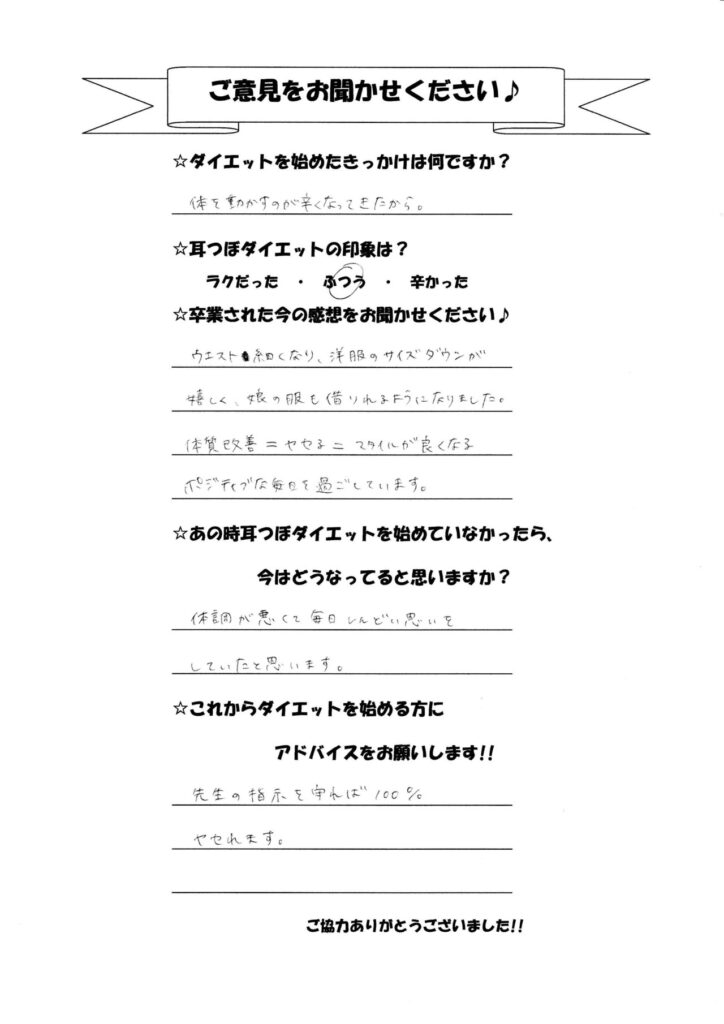 ご意見をお聞かせください♪
☆ダイエットを始めたきっかけは何ですか？
体を動かすのが辛くなってきたから。
☆耳つぼダイエットの印象は？
ラクだった ・ ふつう ・ 辛かった
☆卒業された今の感想をお聞かせください♪
ウエスト細くなり、洋服のサイズダウンが
嬉しく、娘の服も借りれるようになりました。
体質改善＝ヤセる＝スタイルが良くなる
ポジティブな毎日を過ごしています。
☆あの時耳つぼダイエットを始めていなかったら、
今はどうなってると思いますか？
体調が悪くて毎日しんどい思いを
していたと思います。
☆これからダイエットを始める方に
アドバイスをお願いします!!
先生の指示を守れば100%
ヤセれます。
ご協力ありがとうございました!!